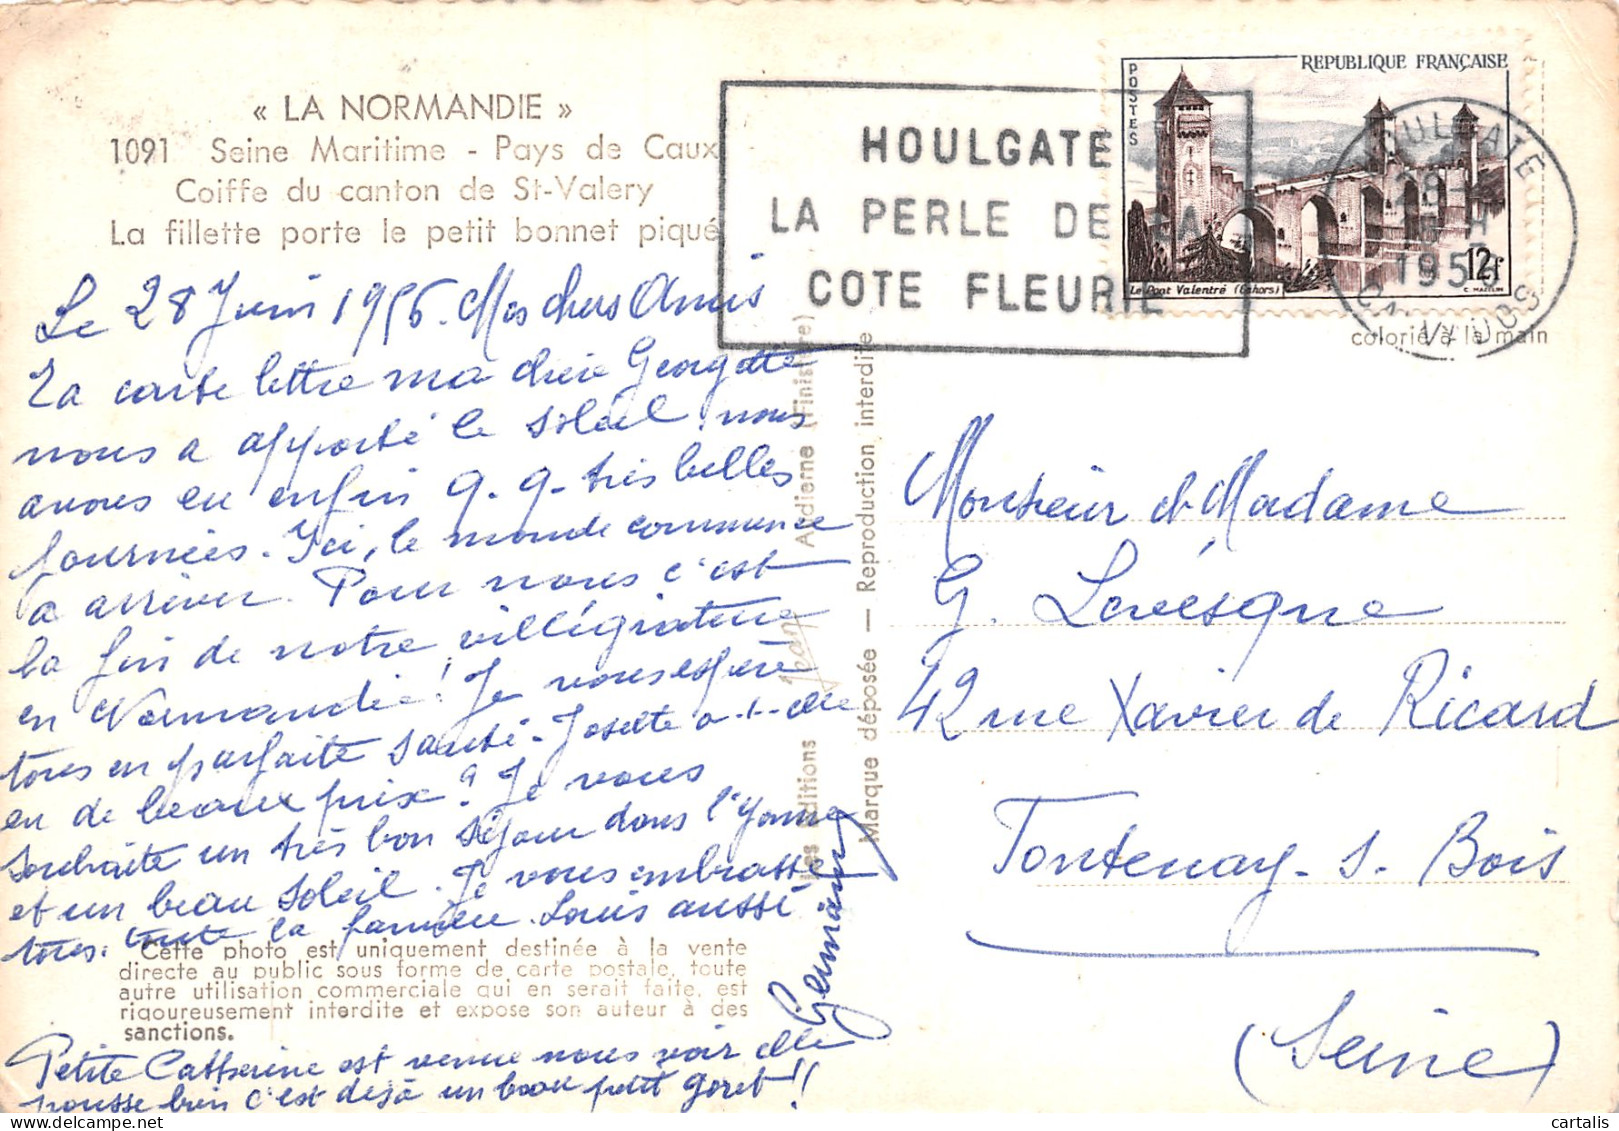 « LA NORMANDIE »
1091 Seine Maritime - Pays de Caux
Coiffe du canton de St-Valery
La fillette porte le petit bonnet piqué
HOULGATE
LA PERLE DE LA
COTE FLEURIE
REPUBLIQUE FRANÇAISE
POSTES
12f
Le Pont Valentré (Cahors)
C. MAZELIN
HOULGATE
CALVADOS
colorié à la main
Le 28 Juin 1956. Mes chers Amis
La carte lettre ma chère Georgette
nous a apporté le soleil, nous
avons eu enfin q. q. très belles
journées. Ici, le monde commence
a arriver. Pour nous c'est
la fin de notre villégiature
en Normandie! Je vous espère
tous en parfaite santé. Josette a-t-elle
eu de beaux prix? Je vous
souhaite un très bon séjour dans l'Yonne
et un beau soleil. Je vous embrasse
tous. toute la famille. Louis aussi
Germaine
Cette photo est uniquement destinée à la vente
directe au public sous forme de carte postale, toute
autre utilisation commerciale qui en serait faite, est
rigoureusement interdite et expose son auteur à des
sanctions.
Petite Catherine est venue nous voir elle
pousse bien c'est déjà un beau petit goret!!
Les Editions Jean Audierne (Finistère)
Marque déposée — Reproduction interdite
Monsieur et Madame
G. Lévésque
42 rue Xavier de Ricard
Fontenay-s-Bois
(Seine)
cartalis